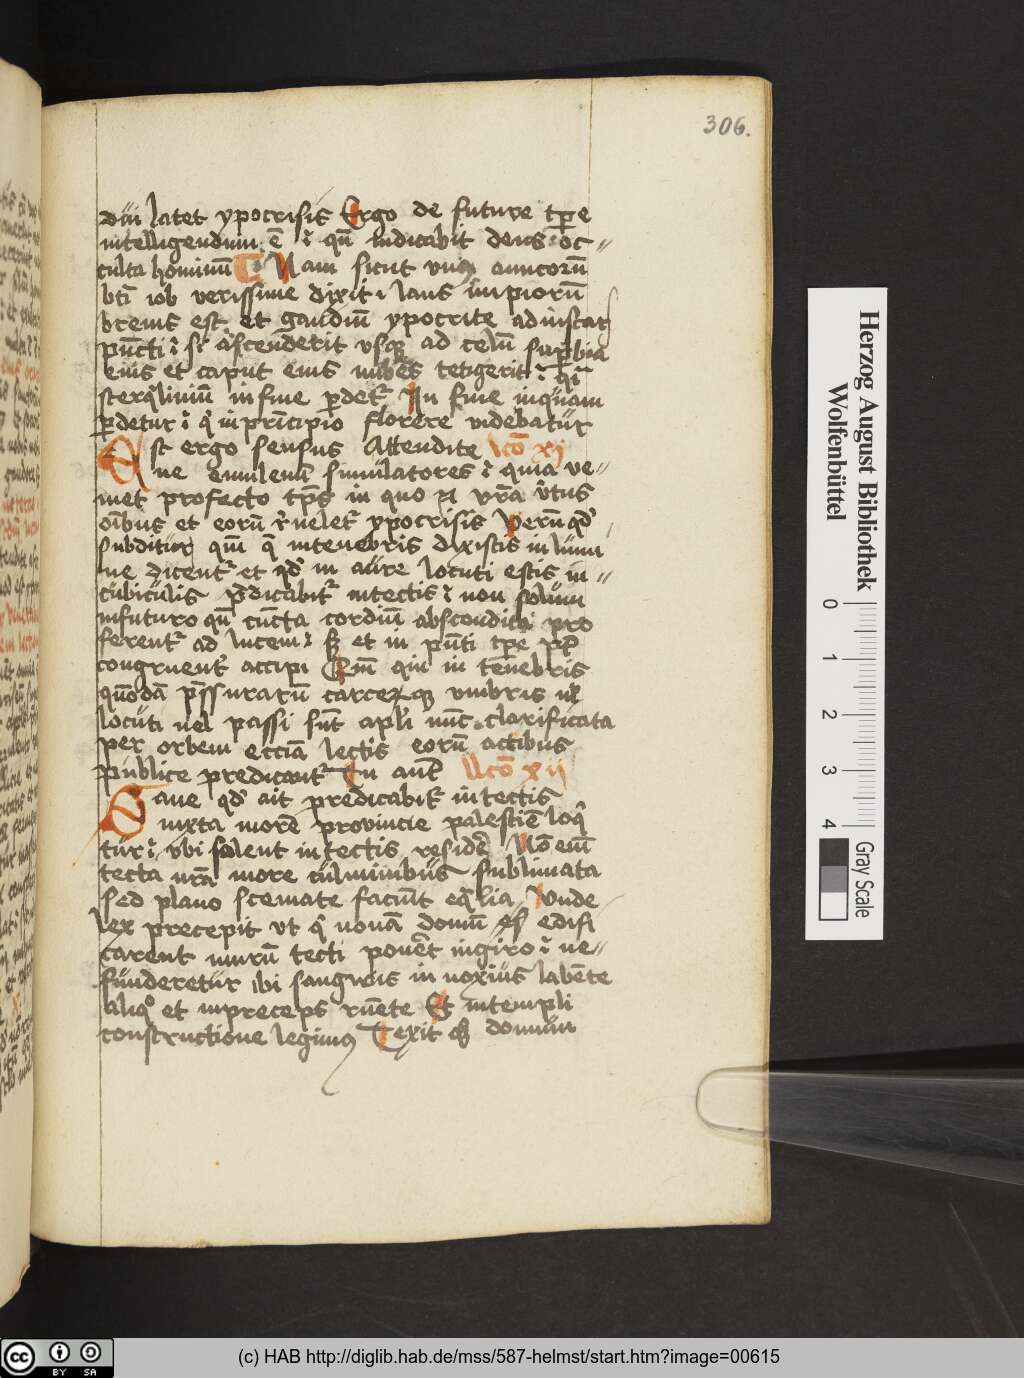 306.
diu latet ypocrisis Ergo de future tp̄e
intelligendum ē ī qn̄ iudicabit deus oc〃
culta hominū Nam sicut vnus amicorū
bt̄i iob verissime dixit laus impiorū
breuis est et gaudiū ypocrite ad instar
pūcti si ascenderit vsqꝫ ad celū suꝑbia
eius et caput eius nubes tetigerit
sterqͥliniū in fine ꝑdet᷑ In fine inquam
ꝑdetur qͥ in prīcipio florere videbatur
Est ergo sensus Attendite lc̄o xi
ne emulem̄ simulatores quia ve〃
niet profecto tp̄s in quo et vr̄a v̓tus
oībus et eorū reuelet᷑ ypocrisis Verū qd̓
subditur qm̄ q̄ in tenebris dixistis in lumi
ne dicent᷑ et qd̓ in aure locuti estis in〃
cubiculis p̄dicabit᷑ in tectis non solum
in futuro qn̄ cūcta cordiū abscondita pro
ferent᷑ ad lucem sꝫ et in pn̄ti tp̄e
congruent᷑ accipi Qm̄ qui in tenebris
quōdā p̄ssurarū carcerꝫqꝫ vmbris ul̓
locuti uel passi sūt apl̓i nūc clarificata
per orbem eccīa lectis eorū actibus
publice predicant᷑ Tu aūt lc̄o xii
Sane qd̓ ait predicabit᷑ in tectis
iuxta morē prouincie palestīe loqͥ
tur vbi solent in tectis residē Nō enī
tecta nr̄a more culminibus sublimata
sed plano scemate faciūt eqͣlia Vnde
lex precepit vt qͥ nouā domū edifi
carent murū tecti ponēt in giro ne〃
funderetur ibi sanguis in noxius labēte
aliqͦ et in preceps ruēte Et in templi
constructione legimus Texit qꝫ domum
Herzog August Bibliothek
Wolfenbüttel
0 1 2 3 4
Gray Scale
cc BY SA
(c) HAB http://diglib.hab.de/mss/587-helmst/start.htm?image=00615